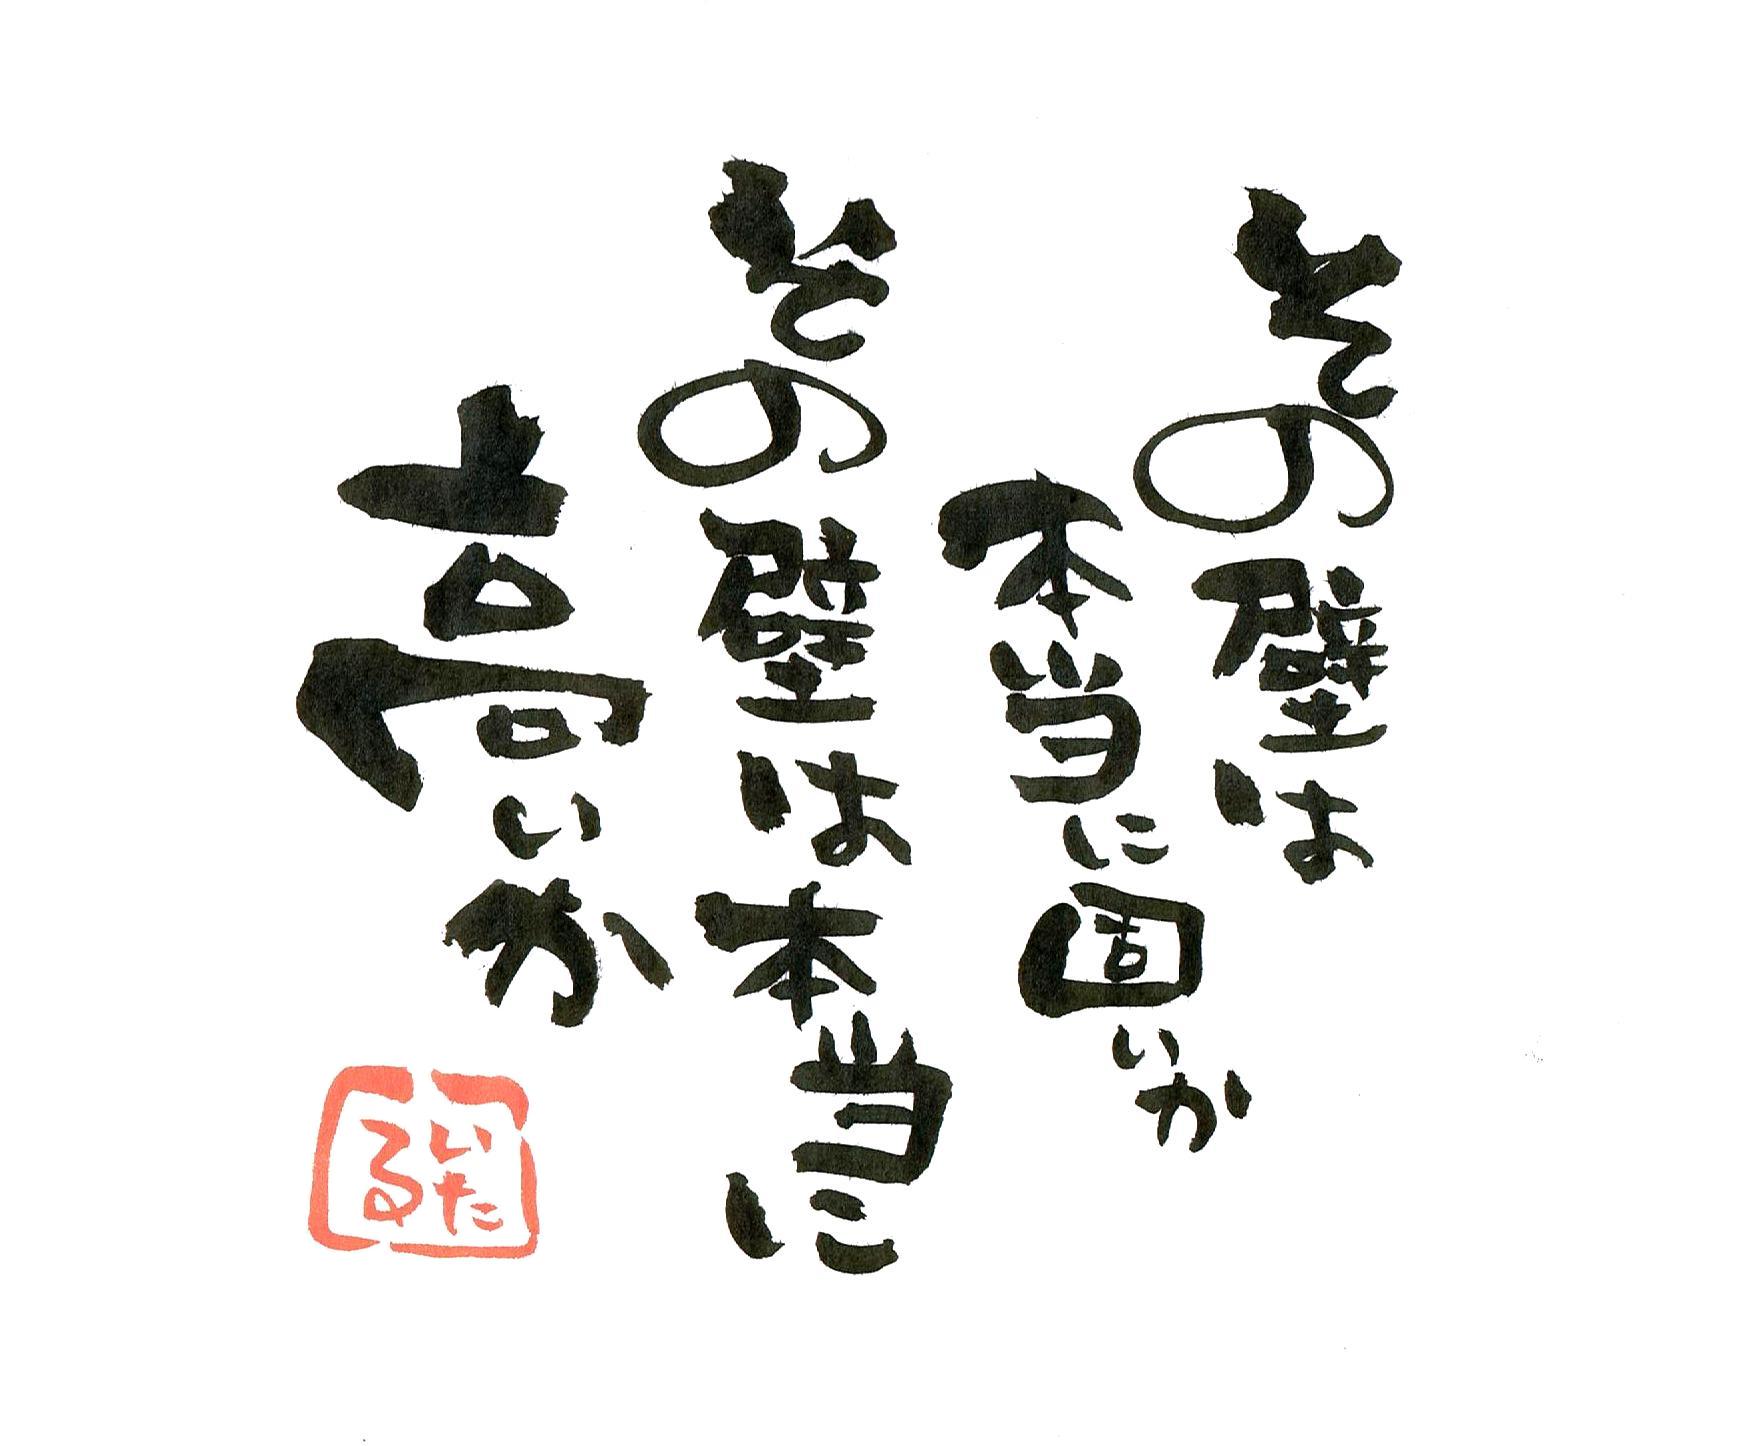 その壁は
本当に固いか
その壁は本当に
高いか
いた
る